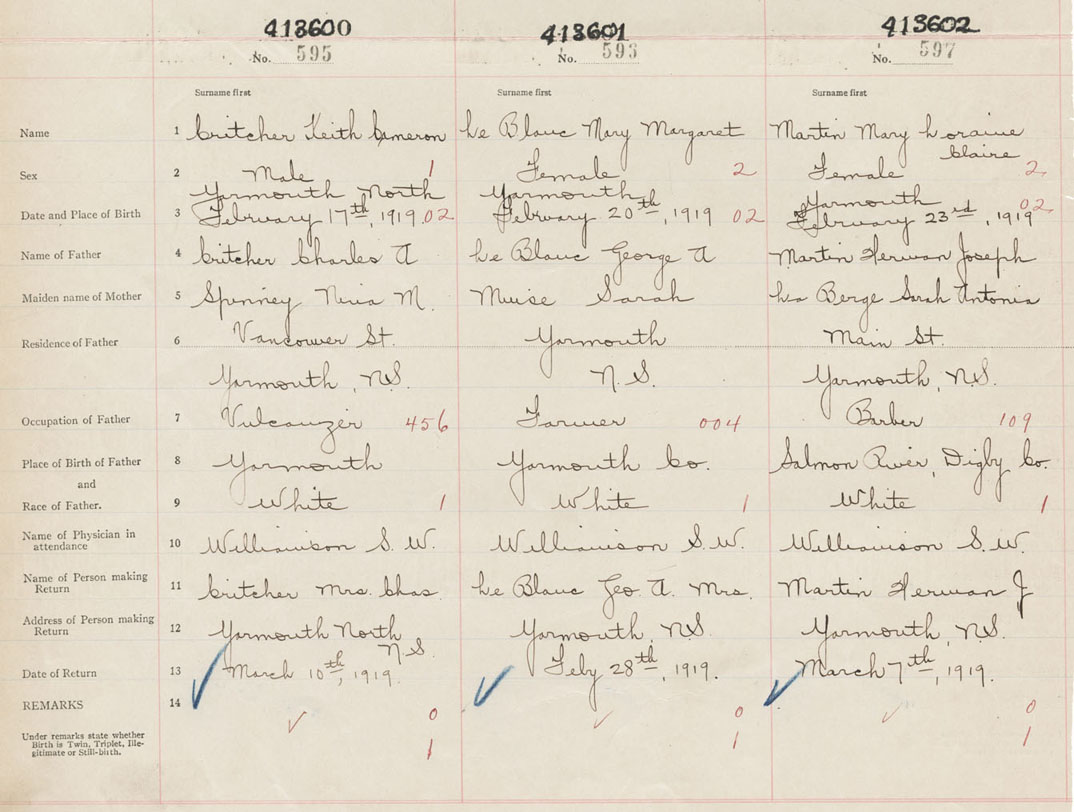 413600 413601 413602
No. 595 No. 593 No. 597
Surname first Surname first Surname first
Name 1 Critcher Keith Cameron Le Blanc Mary Margaret Martin Mary Loraine
Claire
Sex 2 Male 1 Female 2 Female 2
Yarmouth North Yarmouth Yarmouth
Date and Place of Birth 3 February 17th, 1919 02 February 20th, 1919 02 February 23rd, 1919 02
Name of Father 4 Critcher Charles A Le Blanc George A Martin Herman Joseph
Maiden name of Mother 5 Spinney Nina M. Muise Sarah La Berge Sarah Antonia
Residence of Father 6 Vancouver St. Yarmouth Main St.
Yarmouth, N.S. N.S. Yarmouth, N.S.
Occupation of Father 7 Vulcanizer 456 Farmer 004 Barber 109
Place of Birth of Father 8 Yarmouth Yarmouth Co. Salmon River, Digby Co.
and
Race of Father. 9 White 1 White 1 White 1
Name of Physician in
attendance 10 Williamson S. W. Williamson S. W. Williamson S. W.
Name of Person making
Return 11 Critcher Mrs. Chas. Le Blanc Geo. A. Mrs. Martin Herman J
Address of Person making
Return 12 Yarmouth North Yarmouth, N.S. Yarmouth, N.S.
N.S.
Date of Return 13 March 10th, 1919. Feby 28th, 1919. March 7th, 1919.
REMARKS 14 0 0 0
Under remarks state whether
Birth is Twin, Triplet, Ille-
gitimate or Still-birth. 1 1 1